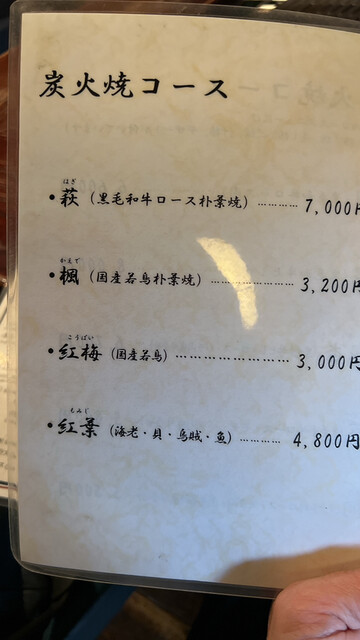 炭火焼コース
はぎ
・萩(黒毛和牛ロース朴葉焼)…………7,000円
かえで
・楓(国産若鳥朴葉焼)……………3,200円
こうばい
・紅梅(国産若鳥)…………………3,000円
もみじ
・紅葉(海老・貝・烏賊・魚)…………4,800円